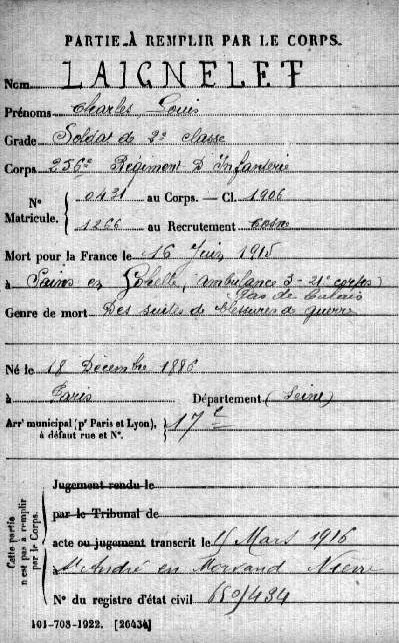 PARTIE À REMPLIR PAR LE CORPS.
Nom LAIGNELET
Prénoms Charles Louis
Grade Soldat de 2e classe
Corps 256e Régiment D'Infanterie
N° 0421 au Corps. — Cl. 1906
Matricule. 1266 au Recrutement Cosne
Mort pour la France le 16 Juin 1915
à Sains en Gohelle, ambulance 3-21e corps
Pas de Calais
Genre de mort Des suites de blessures de guerre
Né le 18 Décembre 1886
à Paris Département (Seine)
Arrt municipal (pr Paris et Lyon), à défaut rue et N°. 17e
Cette partie n'est pas à remplir par le Corps.
Jugement rendu le
par le Tribunal de
acte ou jugement transcrit le 15 Mars 1916
St André en Morvand Nièvre
N° du registre d'état civil
101-708-1922. [26434]